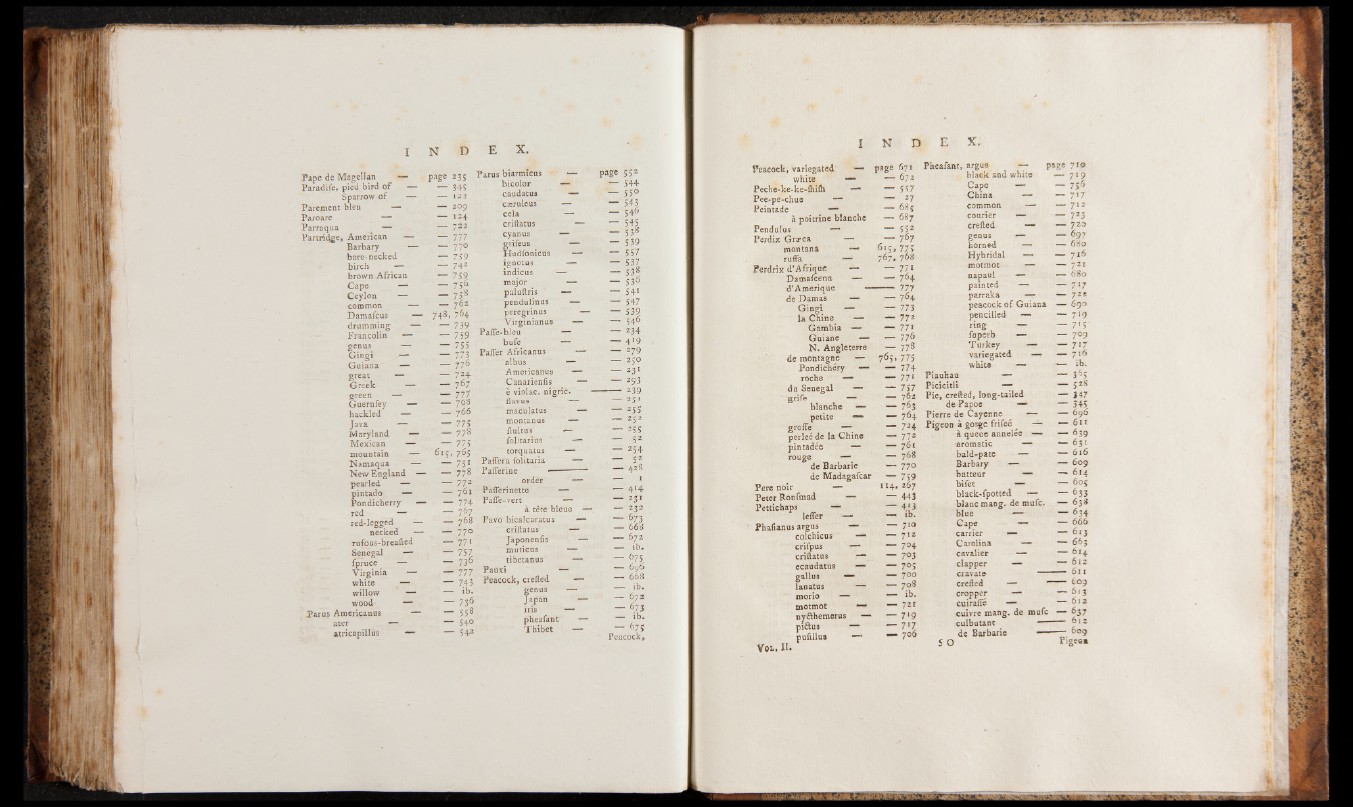 I N D E X.
Pape de Magellan — page 235
Paradiſe, pied bird of — — 345
Sparrow of — — 123
Parement bleu — — 209
Paroare — — 124
Parraqua — — 722
Partridge, American — — 777
Barbary — — 770
bare-necked — 759
birch — — 742
brown African — 759
Cape — — 756
Ceylon — — 758
common — — 762
Damaſcus — 748, 764
drumming — — 739
Francolin — — 759
genus — — 755
Gingi — — 773
Guiana — — 776
great — — 724
Greek — — 767
green — — 777
Guernſey — — 768
hackled — — 766
Java — — 775
Maryland — — 778
Mexican — — 775
mountain — 615, 765
Namaqua — — 751
New England — — 778
pearled — — 772
pintado — — 761
Pondicherry — — 774
red — — 767
red-legged — — 768
necked — — 770
rufous-breaſted — 771
Senegal — — 757
ſpruce — — 736
Virginia — — 777
white — — 743
willow — — ib.
wood — — 736
Parus Americanus — — 558
ater — — 540
atricapillus — — 542
Parus biarmicus — page 552
bicolor — — 544
caudatus — — 550
cæruleus — — 543
cela — — 546
criſtatus — — 545
cyanus — — 538
griſeus — — 539
Hudſonicus — — 557
ignotus — — 537
indicus — — 538
major — — 536
paluſtris — — 541
pendulinus — — 547
peregrinus — — 539
Virginianus — — 546
Paſſe-bleu — — 234
buſe — — 419
Paſſer Africanus — — 279
albus — — 250
Americanus — — 231
Canarienſis — — 293
è violac. nigric. — 239
flavus — — 251
maculatus — — 255
montanus — — 252
ſtultus — — 255
ſolitarius — — 52
torquatus — — 254
Paſſera ſolitaria — — 52
Paſſerine — 428
order — — 1
Paſſerinette — — 414
Paſſe-vert — — 231
à tête bleue — — 232
Pavo bicalcaratus — — 673
criſtatus — — 668
Japonenſis — — 672
muticus — — ib.
tibetanus — — 675
Pauxi — — 696
Peacock, creſted — — 668
genus — — ib.
Japan — — 672
iris — — 673
pheaſant — — ib.
Thibet — — 675
Peacock,
I N D E X.
Peacock, variegated — page 671
white — — 672
Peche-ke-ke-ſhiſh — — 557
Pee-pe-chue — — 27
Peintade — — 685
à poitrine blanche — 687
Pendulus — — 552
Perdix Græca — — 767
montana — 615, 775
ruffa — 767, 768
Perdrix d'Afrique — — 771
Damaſcena — — 764
d'Amerique — 777
de Damas — — 764
Gingi — — 773
la Chine — — 772
Gambia — — 771
Guiane — — 776
N. Angleterre — 778
de montagne — 765, 775
Pondichéry — — 774
roche — — 771
du Senegal — — 757
griſe — — 762
blanche — — 763
petite — — 764
groſſe — — 724
perleé de la Chine — 772
pintadée — — 761
rouge — — 768
de Barbarie — 770
de Madagaſcar — 759
Pere noir — 114, 267
Peter Ronſmad — — 443
Pettichaps — — 413
leſſer — — ib.
Phaſianus argus — — 710
colchicus — — 712
criſpus — — 704
criſtatus — — 703
ecaudatus — — 705
gallus — — 700
lanatus — — 708
morio — — ib.
motmot — — 721
nyƈthemerus — — 719
piƈtus — — 717
puſillus — — 706
VOL. II.
Pheaſant, argus — page 710
black and white — 719
Cape — — 756
China — — 717
common — — 712
courier — — 723
creſted — — 720
genus — — 697
horned — — 680
Hybridal — — 716
motmot — — 721
napaul — — 680
painted — — 717
parraka — — 722
peacock of Guiana — 690
pencilled — — 719
ring — — 715
ſuperb — — 709
Turkey — — 717
variegated — — 716
white — — ib.
Piauhau — — 365
Picicitli — — 528
Pie, creſted, long-tailed — 347
de Papoe — — 345
Pierre de Cayenne — — 696
Pigeon à gorge friſeé — — 611
à queue annelée — — 639
aromatic — — 631
bald-pate — — 616
Barbary — — 609
batteur — — 614
biſet — — 605
black-ſpotted — — 633
blanc mang. de muſc. — 638
blue — — 634
Cape — — 666
carrier — — 613
Carolina — — 663
cavalier — — 614
clapper — — 612
cravate — 611
creſted — 609
cropper — — 613
cuiraſſé — — 612
cuivre mang. de muſc — 637
culbutant — 612
de Barbarie — 609
5 O
Pigeon